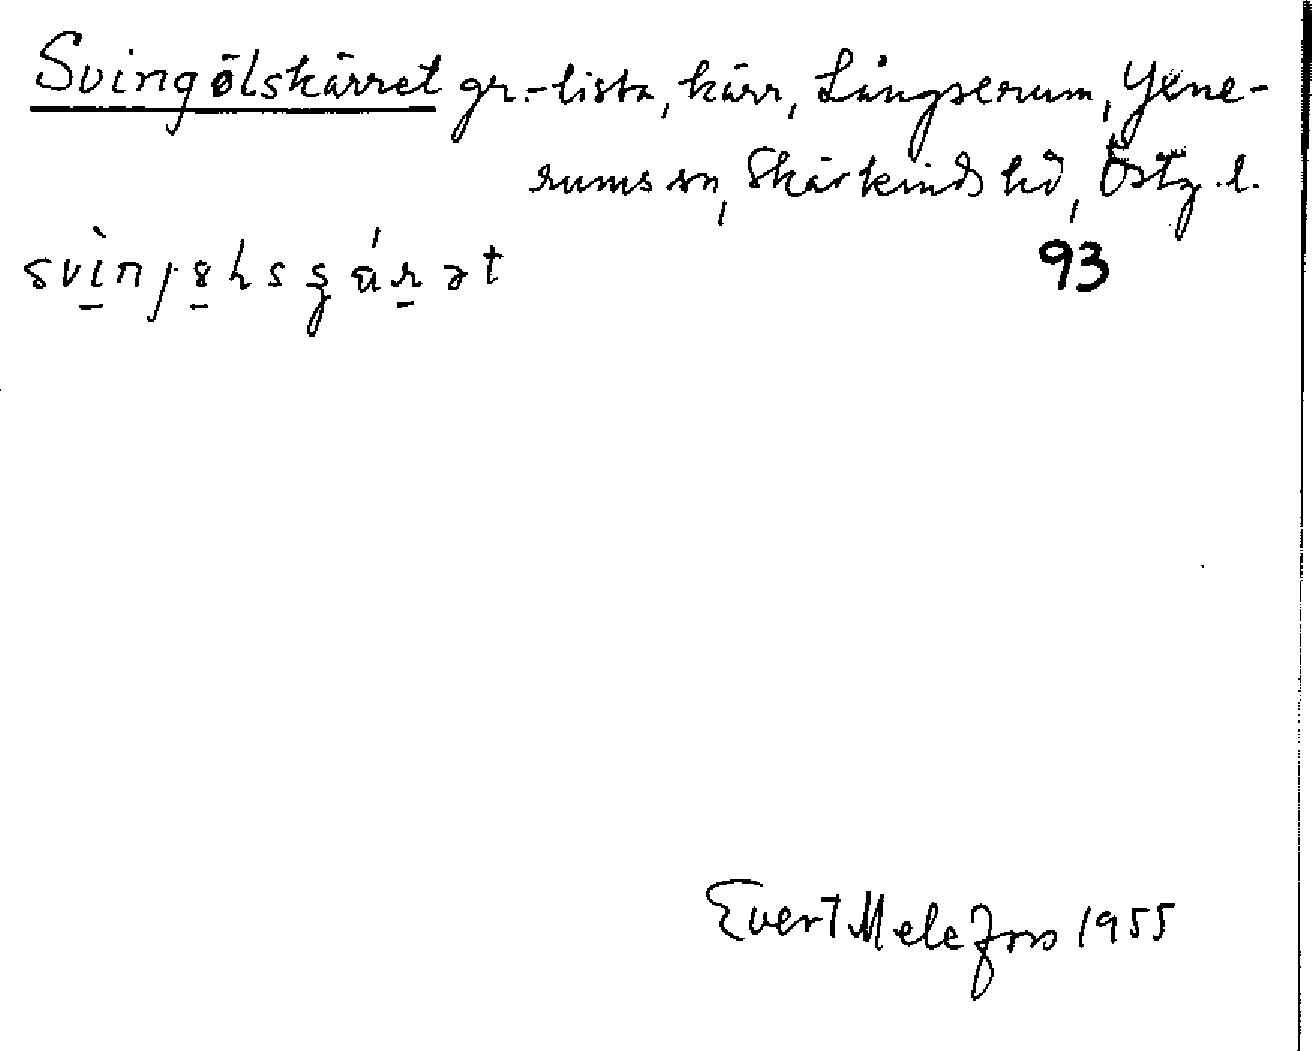 Svingölskärret gr.-lista, kärr, Långserum, Yxne-
rums sn, Skärkinds hd, Östg. l.
93
Evert Melefors 1955